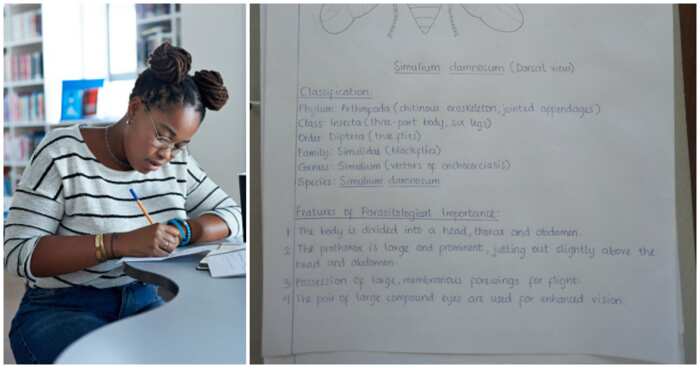 Simulium damnosum (Dorsal view)
Classification:
Phylum: Arthropoda (chitinous exoskeleton, jointed appendages)
Class: Insecta (three-part body, six legs)
Order: Diptera (true flies)
Family: Simuliidae (blackflies)
Genus: Simulium (vectors of onchocerciasis)
Species: Simulium damnosum
Features of Parasitological Importance:
1 The body is divided into a head, thorax and abdomen.
2 The prothorax is large and prominent, jutting out slightly above the
head and abdomen.
3 Possession of large, membranous forewings for flight.
4 The pair of large compound eyes are used for enhanced vision.